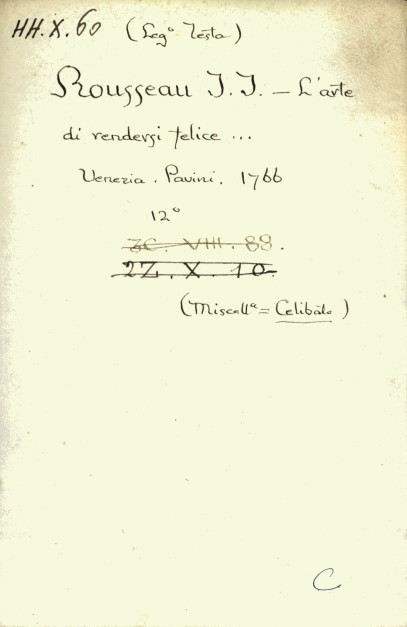 HH.X.60 (Leg° Testa)
Rousseau J.J. — L'arte
di rendersi felice ...
Venezia. Pavini. 1766
12°
3C. VIII. 89.
2Z. X. 10.
(Miscellª = Celibato)
C